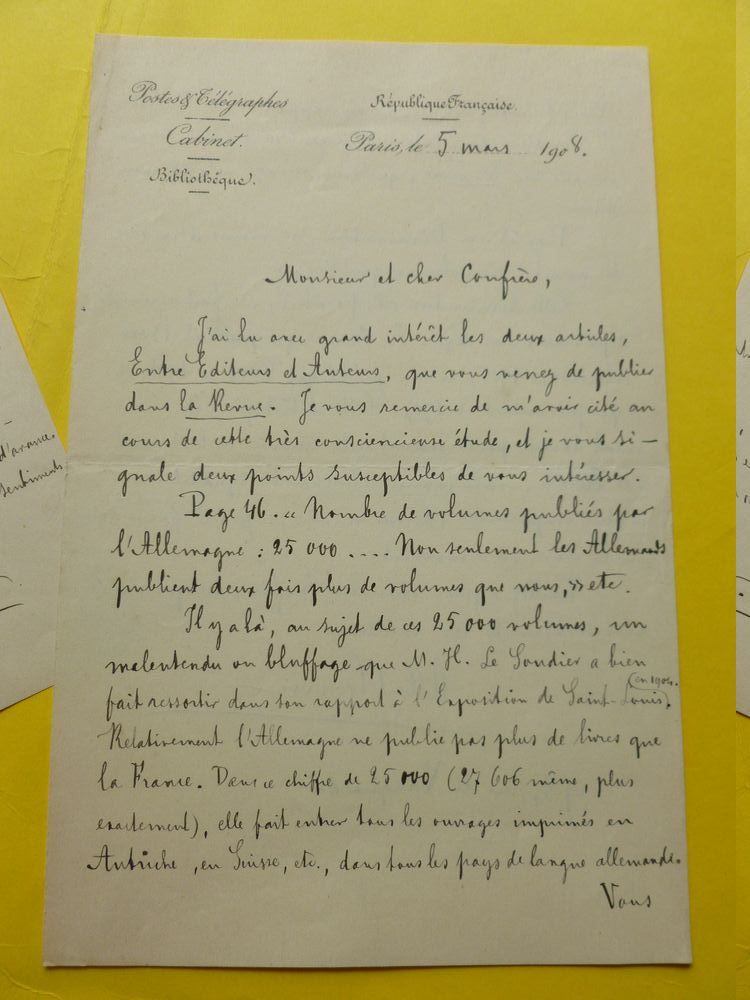 Postes & Télégraphes
Cabinet.
Bibliothèque.
République Française.
Paris, le 5 mars 1908.
Monsieur et cher Confrère,
J'ai lu avec grand intérêt les deux articles,
Entre Editeurs et Auteurs, que vous venez de publier
dans la Revue. Je vous remercie de m'avoir cité au
cours de cette très consciencieuse étude, et je vous si-
gnale deux points susceptibles de vous intéresser.
Page 46. « Nombre de volumes publiés par
l'Allemagne : 25 000 .... Non seulement les Allemands
publient deux fois plus de volumes que nous, » etc.
Il y a là, au sujet de ces 25 000 volumes, un
malentendu ou bluffage que M. H. Le Soudier a bien
fait ressortir dans son rapport à l'Exposition de Saint-Louis (en 1904).
Relativement l'Allemagne ne publie pas plus de livres que
la France. Dans ce chiffre de 25 000 (27 606 même, plus
exactement), elle fait entrer tous les ouvrages imprimés en
Autriche, en Suisse, etc., dans tous les pays de langue allemande.
Vous
d'avance
sentiments